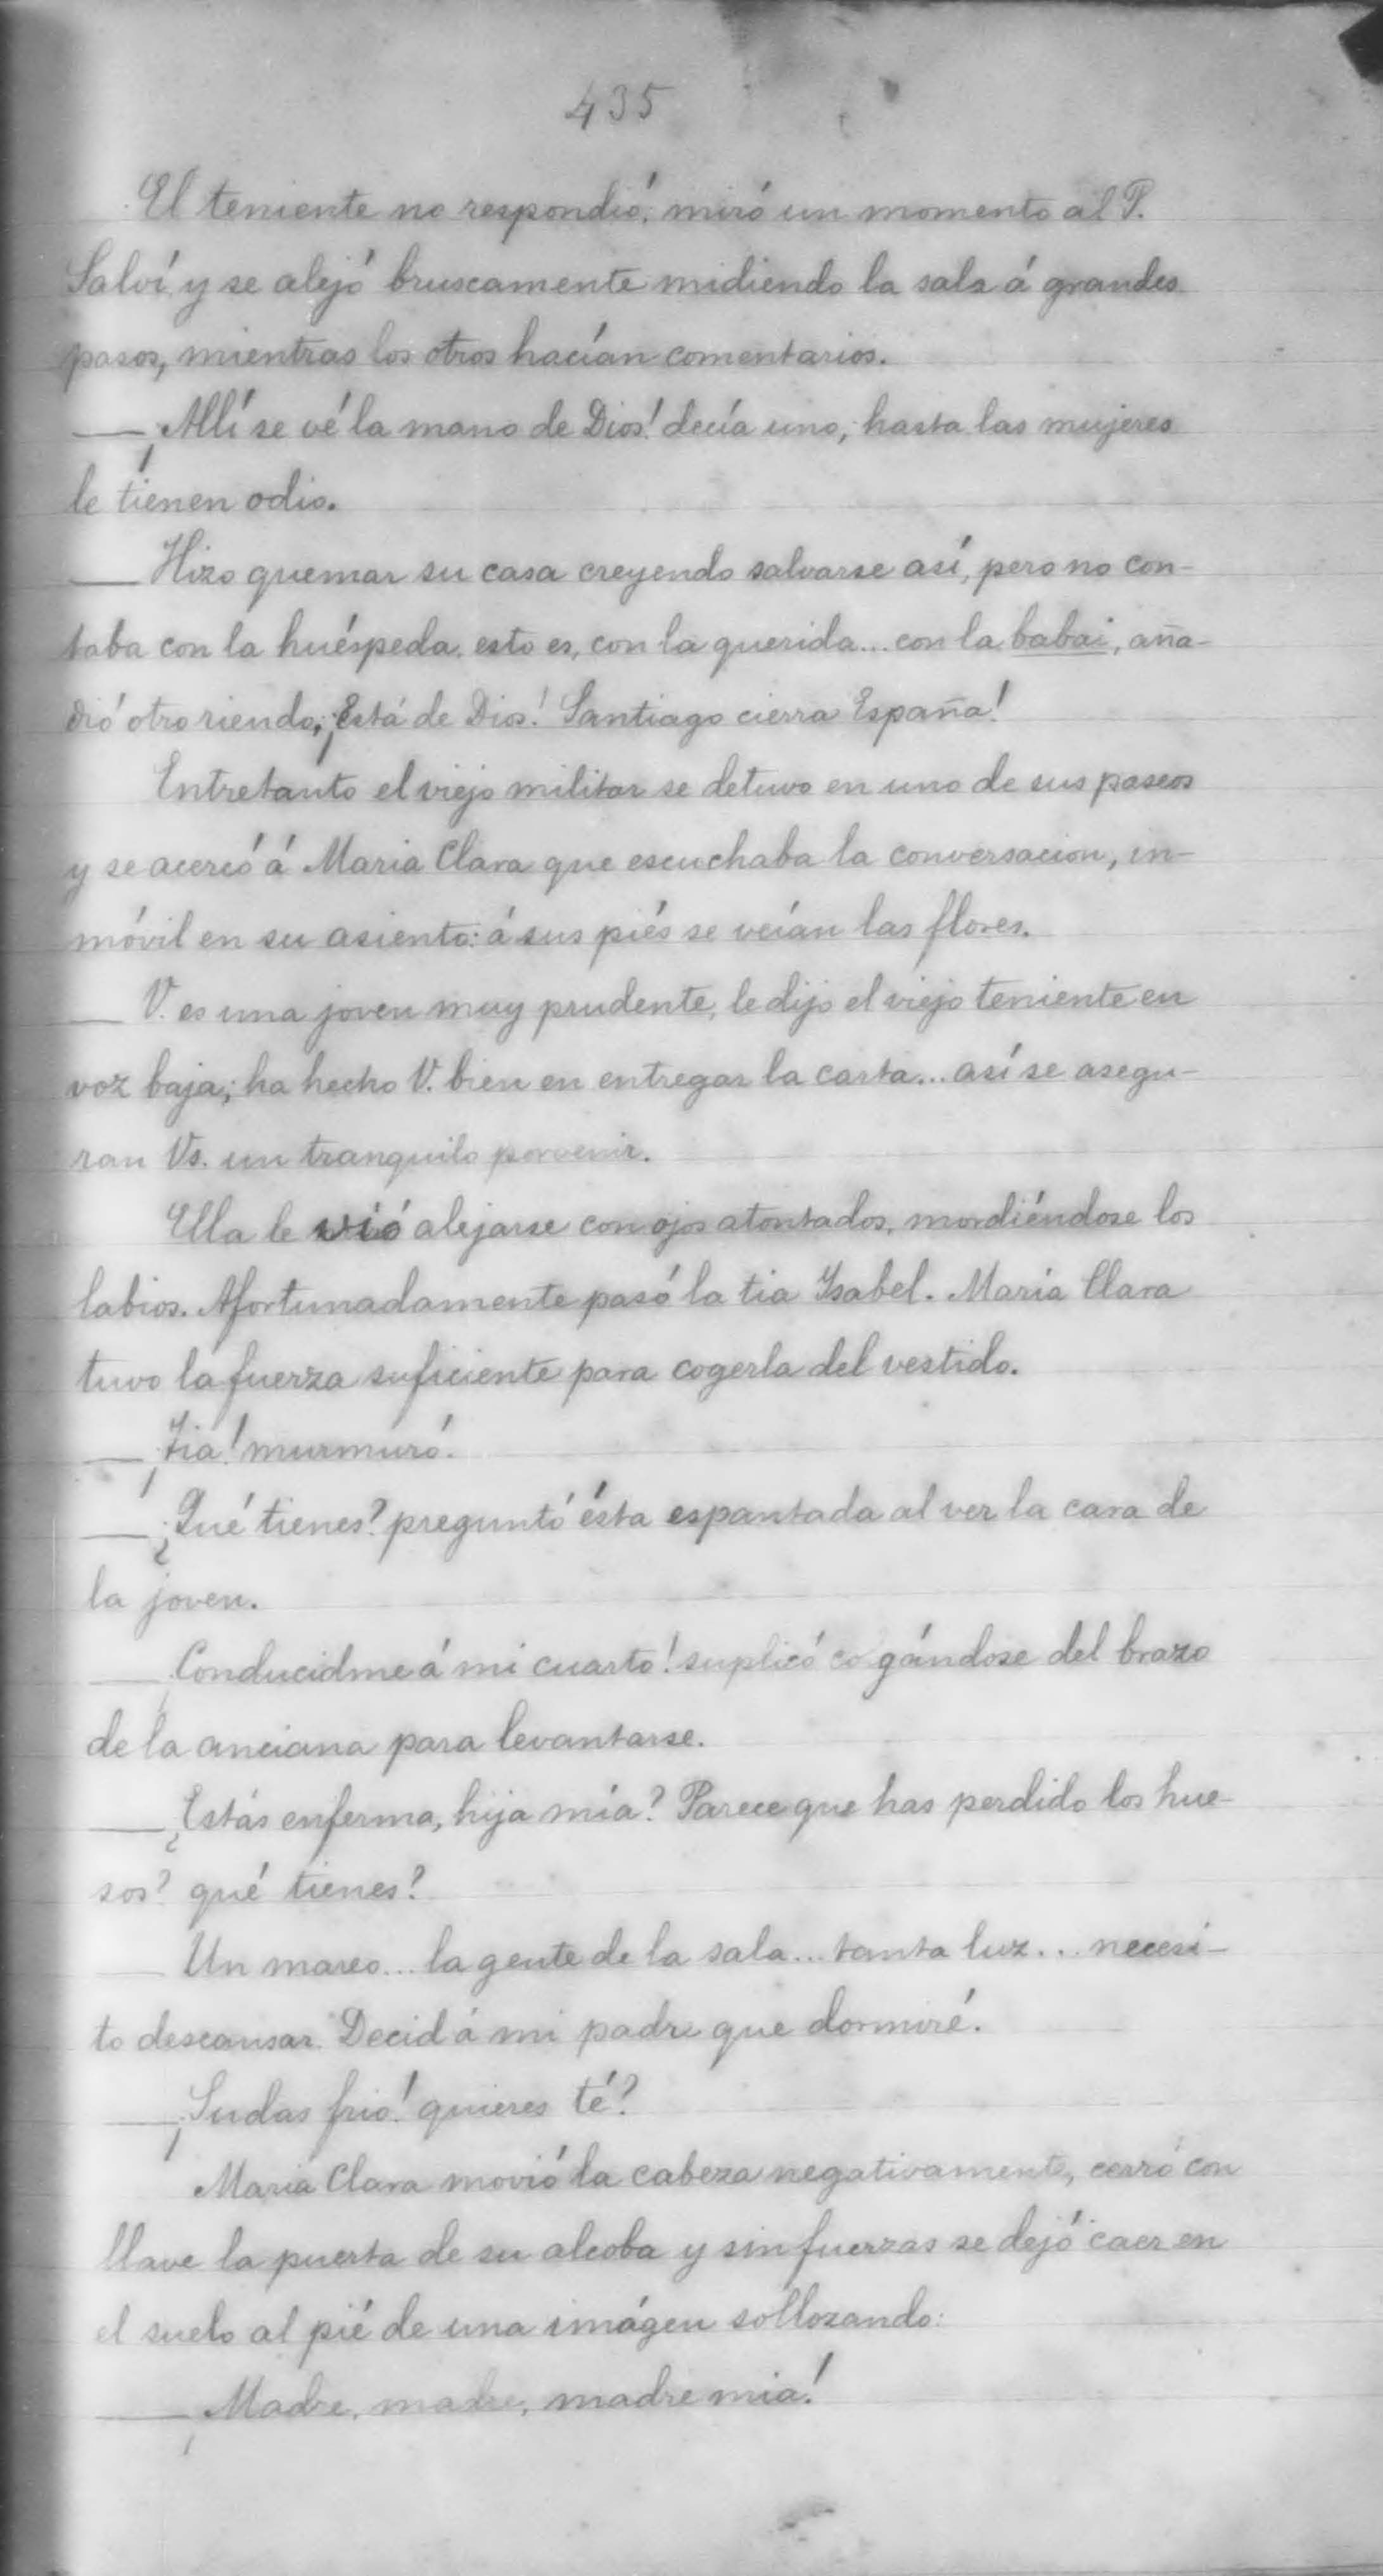 435
El teniente no respondió; miró un momento al P.
Salví y se alejó bruscamente midiendo la sala á grandes
pasos, mientras los otros hacían comentarios.
— ¡Allí se vé la mano de Dios! decía uno; hasta las mujeres
le tienen odio.
— Hizo quemar su casa creyendo salvarse así, pero no con-
taba con la huéspeda, esto es, con la querida... con la babai, aña-
dió otro riendo; ¡Está de Dios! Santiago cierra España!
Entretanto el viejo militar se detuvo en uno de sus paseos
y se acercó á Maria Clara que escuchaba la conversacion, in-
móvil en su asiento: á sus piés se veían las flores.
— V. es una joven muy prudente, le dijo el viejo teniente en
voz baja; ha hecho V. bien en entregar la carta... así se asegu-
ran Vs. un tranquilo porvenir.
Ella le vió alejarse con ojos atontados, mordiéndose los
labios. Afortunadamente pasó la tia Isabel. María Clara
tuvo la fuerza suficiente para cogerla del vestido.
— ¡Tia! murmuró.
— ¿Qué tienes? preguntó ésta espantada al ver la cara de
la joven.
— ¡Conducidme á mi cuarto! suplicó cogándose del brazo
de la anciana para levantarse.
— ¿Estás enferma, hija mía? Parece que has perdido los hue-
sos? qué tienes?
— Un mareo... la gente de la sala... tanta luz... necesi-
to descansar. Decid á mi padre que dormiré.
— ¡Sudas frio! quieres té?
María Clara movió la cabeza negativamente, cerró con
llave la puerta de su alcoba y sin fuerzas se dejó caer en
el suelo al pié de una imágen sollozando:
— ¡Madre, madre, madre mia!